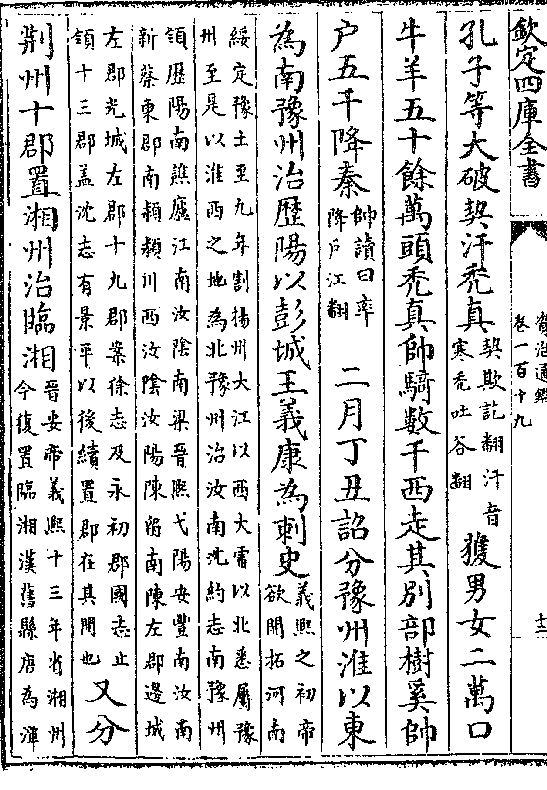 欽定四庫全書
資治通鑑
卷一百十九
十二
孔子等大破契汗禿真
契欺訖翻汗音
寒禿吐谷翻
獲男女二萬口
牛羊五十餘萬頭禿真帥騎數千西走其别部樹奚帥
户五千降秦
帥讀曰率
降戸江翻
二月丁丑詔分豫州淮以東
為南豫州治歷陽以彭城王義康為刺史
義熙之初帝
欲開拓河南
綏定豫土至九年割揚州大江以西大雷以北悉屬豫
州至是以淮西之地為北豫州治汝南沈約志南豫州
領歷陽南譙廬江南汝陰南梁晉熙弋陽安豐南汝南
新蔡東郡南頴頴川西汝陰汝陽陳留南陳左郡邊城
左郡光城左郡十九郡案徐志及永初郡國志止
領十三郡盖沈志有景平以後續置郡在其間也
又分
荆州十郡置湘州治臨湘
晉安帝義熙十三年省湘州
今復置臨湘漢舊縣唐為潭